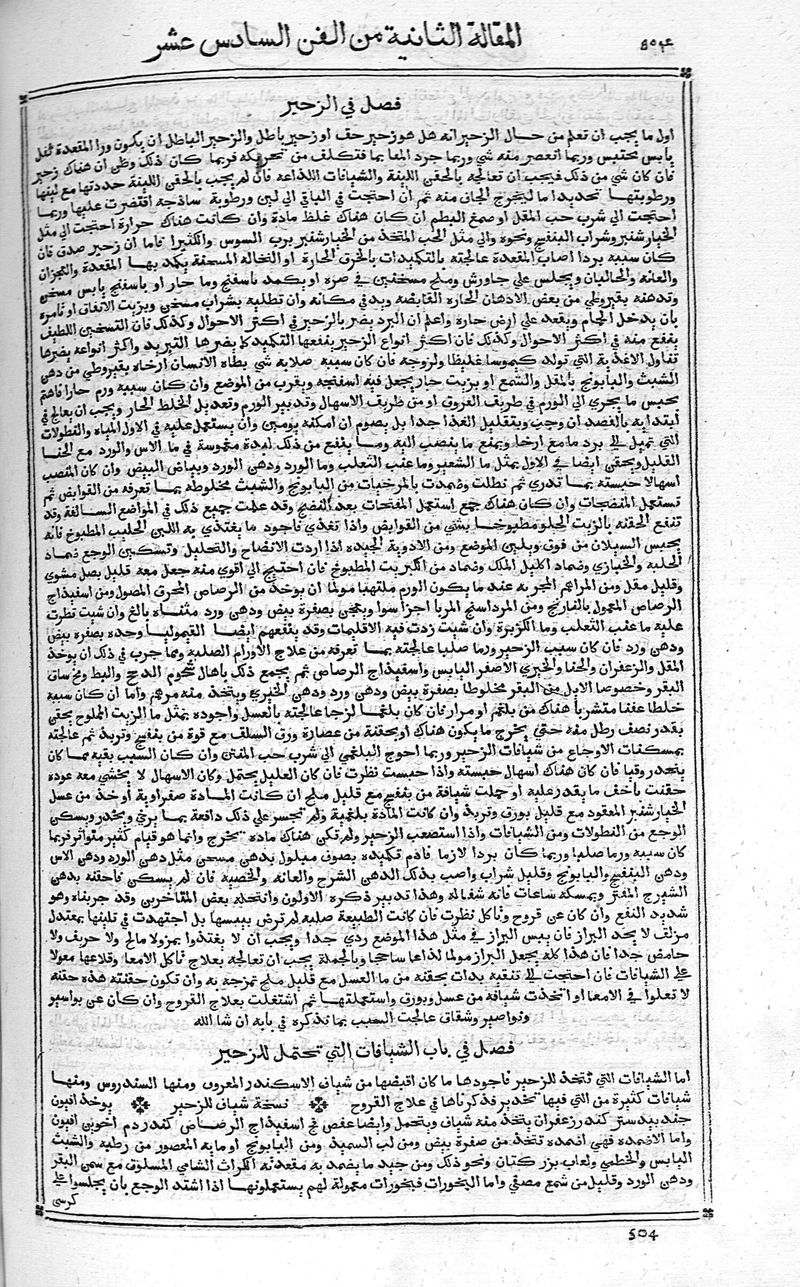 المقالة الثانية من الفن السادس عشر
فصل في الزحير
اول ما يجب ان تعلم من حال الزحير انه هل هو زحير حق او زحير باطل والزحير الباطل ان يكون ورا المقعدة ثفل
يابس محتبس وربما انعصر منه شي وربما جرد المعا بما فتكلف من تحريكه فربما كان ذلك وظن ان هناك زحير
فان كان شي من ذلك فيجب ان تعالجه بالحقن اللينة والشيافات اللذاعه فان لم يجب بالحقن اللينة حددتها مع لينها
ورطوبتها تحديدا ما ليخرج الجاف منه ثم ان احتجت في الباقي الى لين ورطوبة ساذجة اقتصرت عليها وربما
احتجت الى شرب حب المقل او صمغ البطم ان كان هناك غلظ مادة وان كانت هناك حرارة احتجت الى مثل
الخيارشنبر وشراب البنفسج ونحوه والى مثل الحب المتخذ من الخيارشنبر برب السوس والكثيرا فاما ان زحير صدق فان
كان سببه بردا اصاب المقعدة عالجته بالتكميدات بالخرق الحارة او النخاله المسخنة يكمد بها المقعدة والعجزان
والعانه والحالبان ويجلس علي جاورش وملح مسخنين في صره او يكمد باسفنج وما حار او باسفنج يابس مسخن
وتدهنه بقيروطي من بعض الادهان الحاره القابضه ويدفي مكانه وان تطليه بشراب مسخن وبزيت الانفاق او تامره
بان يدخل الحمام ويقعد علي ارض حارة واعلم ان البرد يضر بالزحير في اكثر الاحوال وكذلك فان التسخين اللطيف
ينفع منه في اكثر الاحوال وكذلك فان اكثر انواع الزحير ينفعها التكميد كما يضرها التبريد واكثر انواعه يضرها
تناول الاغذية التي تولد كيموسا غليظا ولزوجة فان كان سببه صلابه شي يطاه الانسان ارخاه بقيروطي من دهن
الشبث والبابونج بالمقل والشمع او بزيت حار يجعل فيه اسفنجه ويقرب من الموضع وان كان سببه ورم حار افاهتم
بحبس ما يجري الى الورم في طريف العروق او من طريف الاسهال وتدبير الورم وتعديل الخلط الحار ويجب ان يعالج في
ابتدايه بالفصد ان وجب وبتقليل الغذا جدا بل يصوم ان امكنه يومين وان يستعمل عليه في الاول المياه والنطولات
التي تميل الى برد ما مع ارخا ويمنع ما ينصب اليه ومما ينفع من ذلك لبدة مغموسة في ما الاس والورد مع الحنا
القليل ويحقن ايضا في الاول بمثل ما الشعير وما عنب الثعلب وما الورد ودهن الورد وبياض البيض وان كان المنصب
اسهالا حبسته بما تدري ثم نطلت وضمدت بالمرخيات من البابونج والشبث مخلوطه بما تعرفه من القوابض ثم
تستعمل المنضجات وان كان هناك جمع استعمل المفتحات بعد النضج وقد علمت جميع ذلك في المواضع السالفة وقد
تنفع الحقنه بالزيت الحلو مطبوخا بشي من القوابض واذا تغذي فاجود ما يغتذي به اللبن الحليب المطبوخ فانه
يحبس السيلان من فوق ويلين الموضع ومن الادوية الجيدة اذا اردت الانضاج والتحليل وتسكين الوجع ضماد
الحلبه والخبازي وضماد اكليل الملك وضماد من الكرنب المطبوخ فان احتيج الى اقوي منه جعل معه قليل بصل مشوي
وقليل مقل ومن المراهم المجربه عند ما يكون الورم ملتهبا مولما ان يوخذ من الرصاص المحرق المصول ومن اسفيداج
الرصاص المعمول بالنارنج ومن المرداسنج المربا اجزا سوا ويعجن بصفرة بيض ودهن ورد متناه بالغ وان شيت قطرت
عليه ما عنب الثعلب وما الكزبرة وان شيت زدت فيه الاقليميات وقد ينفعهم ايضا القيموليا وحده بصفره بيض
ودهن ورد فان كان سبب الزحير ورما صلبا عالجته بما تعرفه من علاج الاورام الصلبه ومما جرب في ذلك ان يوخذ
المقل والزعفران والحنا والخيري الاصفر اليابس واسفيذاج الرصاص ثم يجمع ذلك باهال شحوم الدجج والبط ومخ ساق
البقر وخصوصا الايل من البقر مخلوطا بصفرة بيض ودهن ورد ودهن الخيري ويتخذ منه مرهم واما ان كان سببه
خلطا عفنا متشربا هناك من بلغم او مرار فان كان بلغما لزجا عالجته بالعسل واجوده بمثل ما الزيت المملوح يحقن
بقدر نصف رطل منه حتي يخرج ما يكون هناك او بحقنة من عصارة ورق السلق مع قوة من بنفسج وتربد ثم عالجته
بمسكنات الاوجاع من شيافات الزحير وربما احوج البلغمي الى شرب حب المنتن وان كان السبب بقيه مما كان
ينحدر وقيا فان كان هناك اسهال حبسته واذا حبست نظرت فان كان العليل يحتمل وكان الاسهال لا يخشي معه عوده
حقنت باخف ما يقدر عليه او حملت شيافة من بنفسج مع قليل ملح ان كانت المادة صفراوية او خذ من عسل
الخيارشنبر المعقود مع قليل بورق وتربد وان كانت المادة بلغمية ولم تجسر علي ذلك دافعة بما يرخي ويخدر ويسكن
الوجع من النطولات ومن الشيافات واذا استصعب الزحير ولم تكن هناك مادة تخرج وانما هو قيام كثير متواتر فربما
كان سببه ورما صلبا وربما كان بردا لازما فادم تكميده بصوف مبلول بدهن مسخن مثل دهن الورد ودهن الاس
ودهن البنفسج والبابونج وقليل شراب واصب بذلك الدهن الشرج والعانه والخصيه فان لم يسكن فاحقنه بدهن
الشيرج المفتر ويمسكه ساعات فانه شفا له وهذا تدبير ذكره الاولون وانتحله بعض المتاخرين وقد جربناه وهو
شديد النفع وان كان عن قروح وتاكل نظرت فان كانت الطبيعة صلبه لم ترض بيبسها بل اجتهدت في تليينها بمعتدل
مزلق لا يحد البراز فان يبس البراز في مثل هذا الموضع ردي جدا ويجب ان لا يغتذوا بمزولا مالح ولا حريف ولا
حامض جدا فان هذا كله يجعل البراز مولما لذاعا ساحجا وبالجملة يجب ان تعالجه بعلاج تاكل الامعا وقلاعها معولا
علي الشيافات فان احتجت الى تنقيه بدات بحقنه من ما العسل مع قليل ملح تمزجه به وان تكون حقنته هذه حقنه
لا تعلوا في الامعا او اتخذت شيافة من عسل وبورق واستعملتها ثم اشتغلت بعلاج القروح وان كان عن بواسير
ونواصير وشقاق عالجت السبب بما نذكره في بابه ان شا الله
فصل في باب الشيافات التي تحتمل للزحير
اما الشيافات التي تتخذ للزحير فاجودها ما كان اقبضها من شياف الاسكندر المعروف ومنها السندروس ومنها
شيافات كثيرة من التي فيها تخدير قد ذكرناها في علاج القروح نسخة شياف للزحير يوخذ افيون
جندبيدستر كندر زعفران يتخذ منه شياف ويتحمل وايضا عفص فج اسفيذاج الرصاص كندر دم اخوين افيون
واما الاضمده فهي اضمده تتخذ من صفرة بيض ومن لب السميد ومن البابونج او مايه المعصور من رطبه والشبث
اليابس والخطمي ولعاب بزر كتان ونحو ذلك ومن جيد ما يضمد به مقعدته الكراث الشامي المسلوق مع سمن البقر
ودهن الورد وقليل من شمع مصفي واما البخورات فبخورات معمولة لهم يستعملونها اذا اشتد الوجع بان يجلسوا علي
كرسي
504